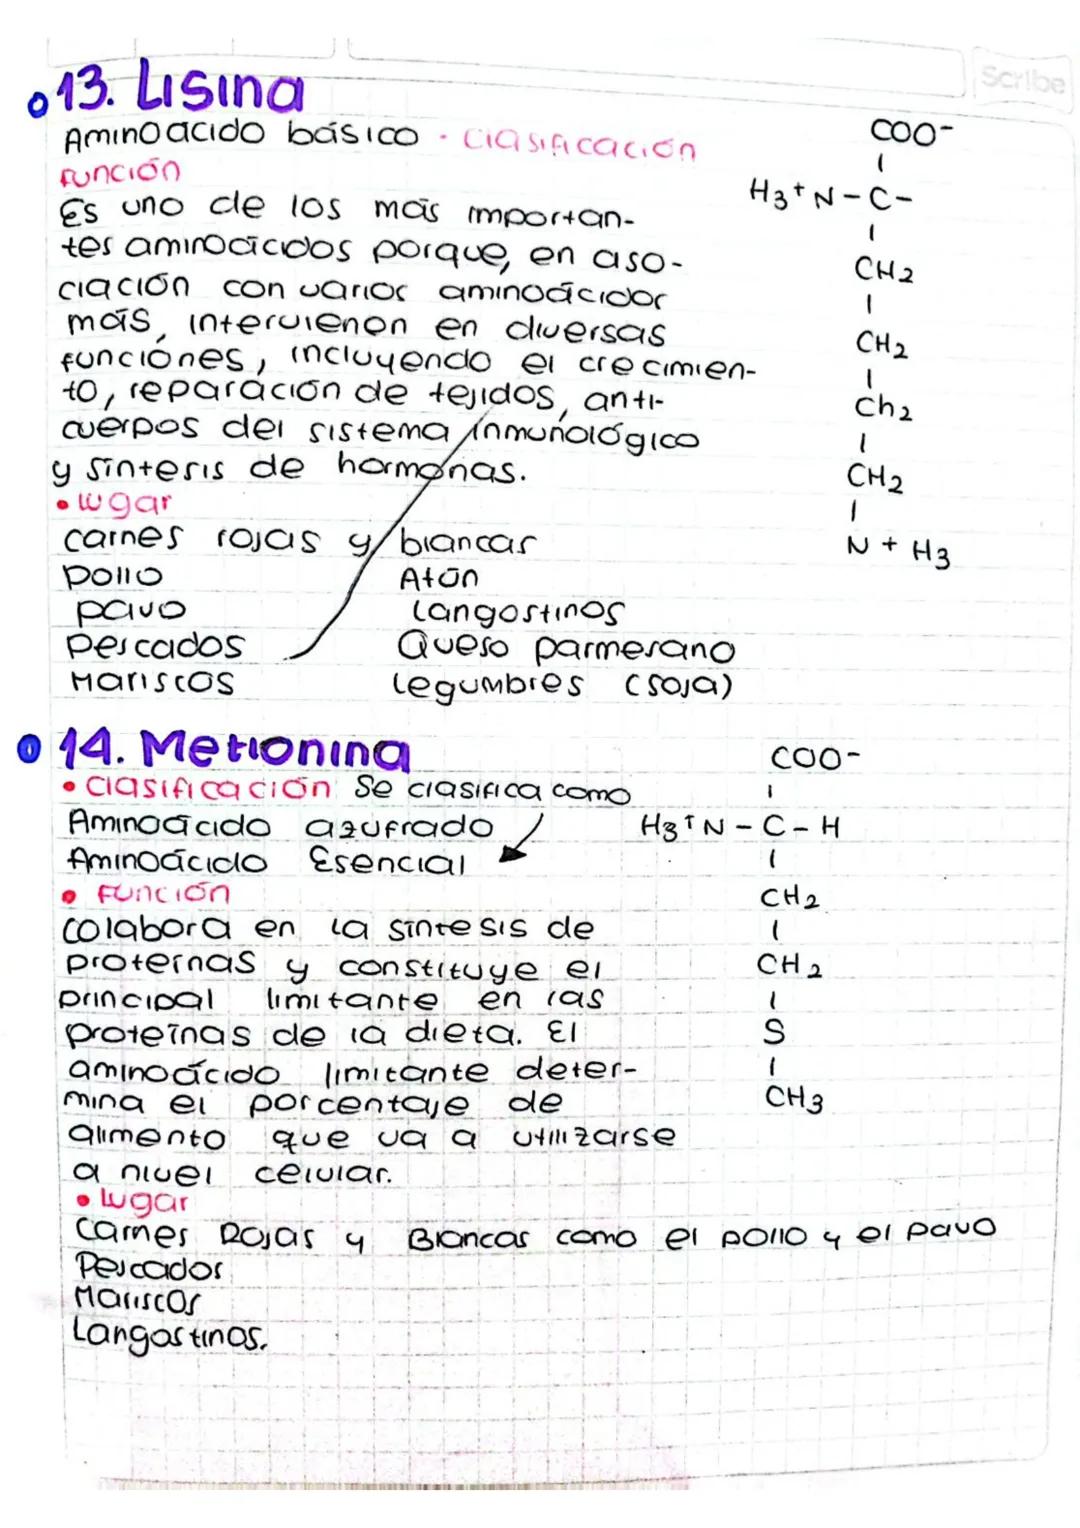 Scribe
13. Lisina
Aminoacido básico · clasificación
función
Es uno de los más importan-
tes aminoácidos porque, en aso-
ciación con varios aminoácidos
más, intervienen en diversas
funciónes, incluyendo el crecimien-
to, reparación de tejidos, anti-
cuerpos del sistema inmunológico
y síntesis de hormonas.
• lugar
carnes rojas y blancas
pollo
pavo
Pescados
Mariscos
Atún
Langostinos
Queso parmesano
Legumbres (soja)
COO-
H3+N-C-
CH2
CH2
Ch2
CH2
N + H3
14. Metionina
• Clasificación: Se clasifica como
Aminoácido azufrado
Aminoácido Esencial
• Función
Colabora en la síntesis de
proteínas y constituye el
principal limitante en las
proteínas de la dieta. El
aminoácido limitante deter-
mina el porcentaje de
alimento que va a utilizarse
a nivel celular.
• lugar
Carnes Rojas y Blancas como el pollo y el pavo
Pescados
Mariscos
Langostinos.
COO-
H3+N-C-H
CH2
CH2
S
CH3